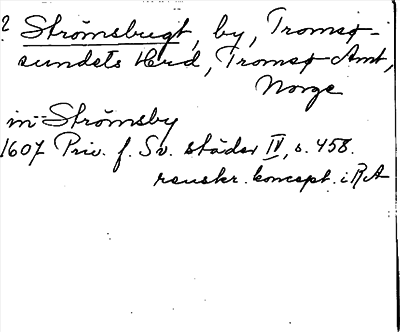 ? Strömsbugt, by, Tromsø-
sundets Hrd, Tromsø Amt,
Norge
in Strömsby
1607 Priv. f. Sv. städer IV, s. 458.
renskr. koncept. i RA